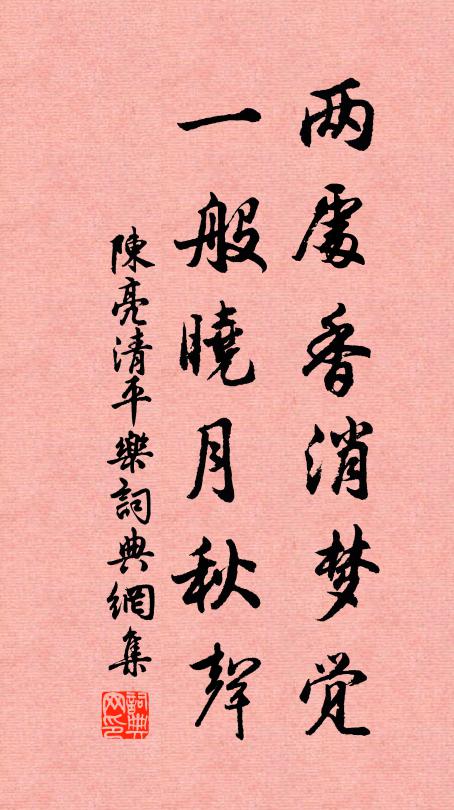 两處香消梦觉
一般曉月秋聲
陳亮清平樂詞典網集
詞典网印